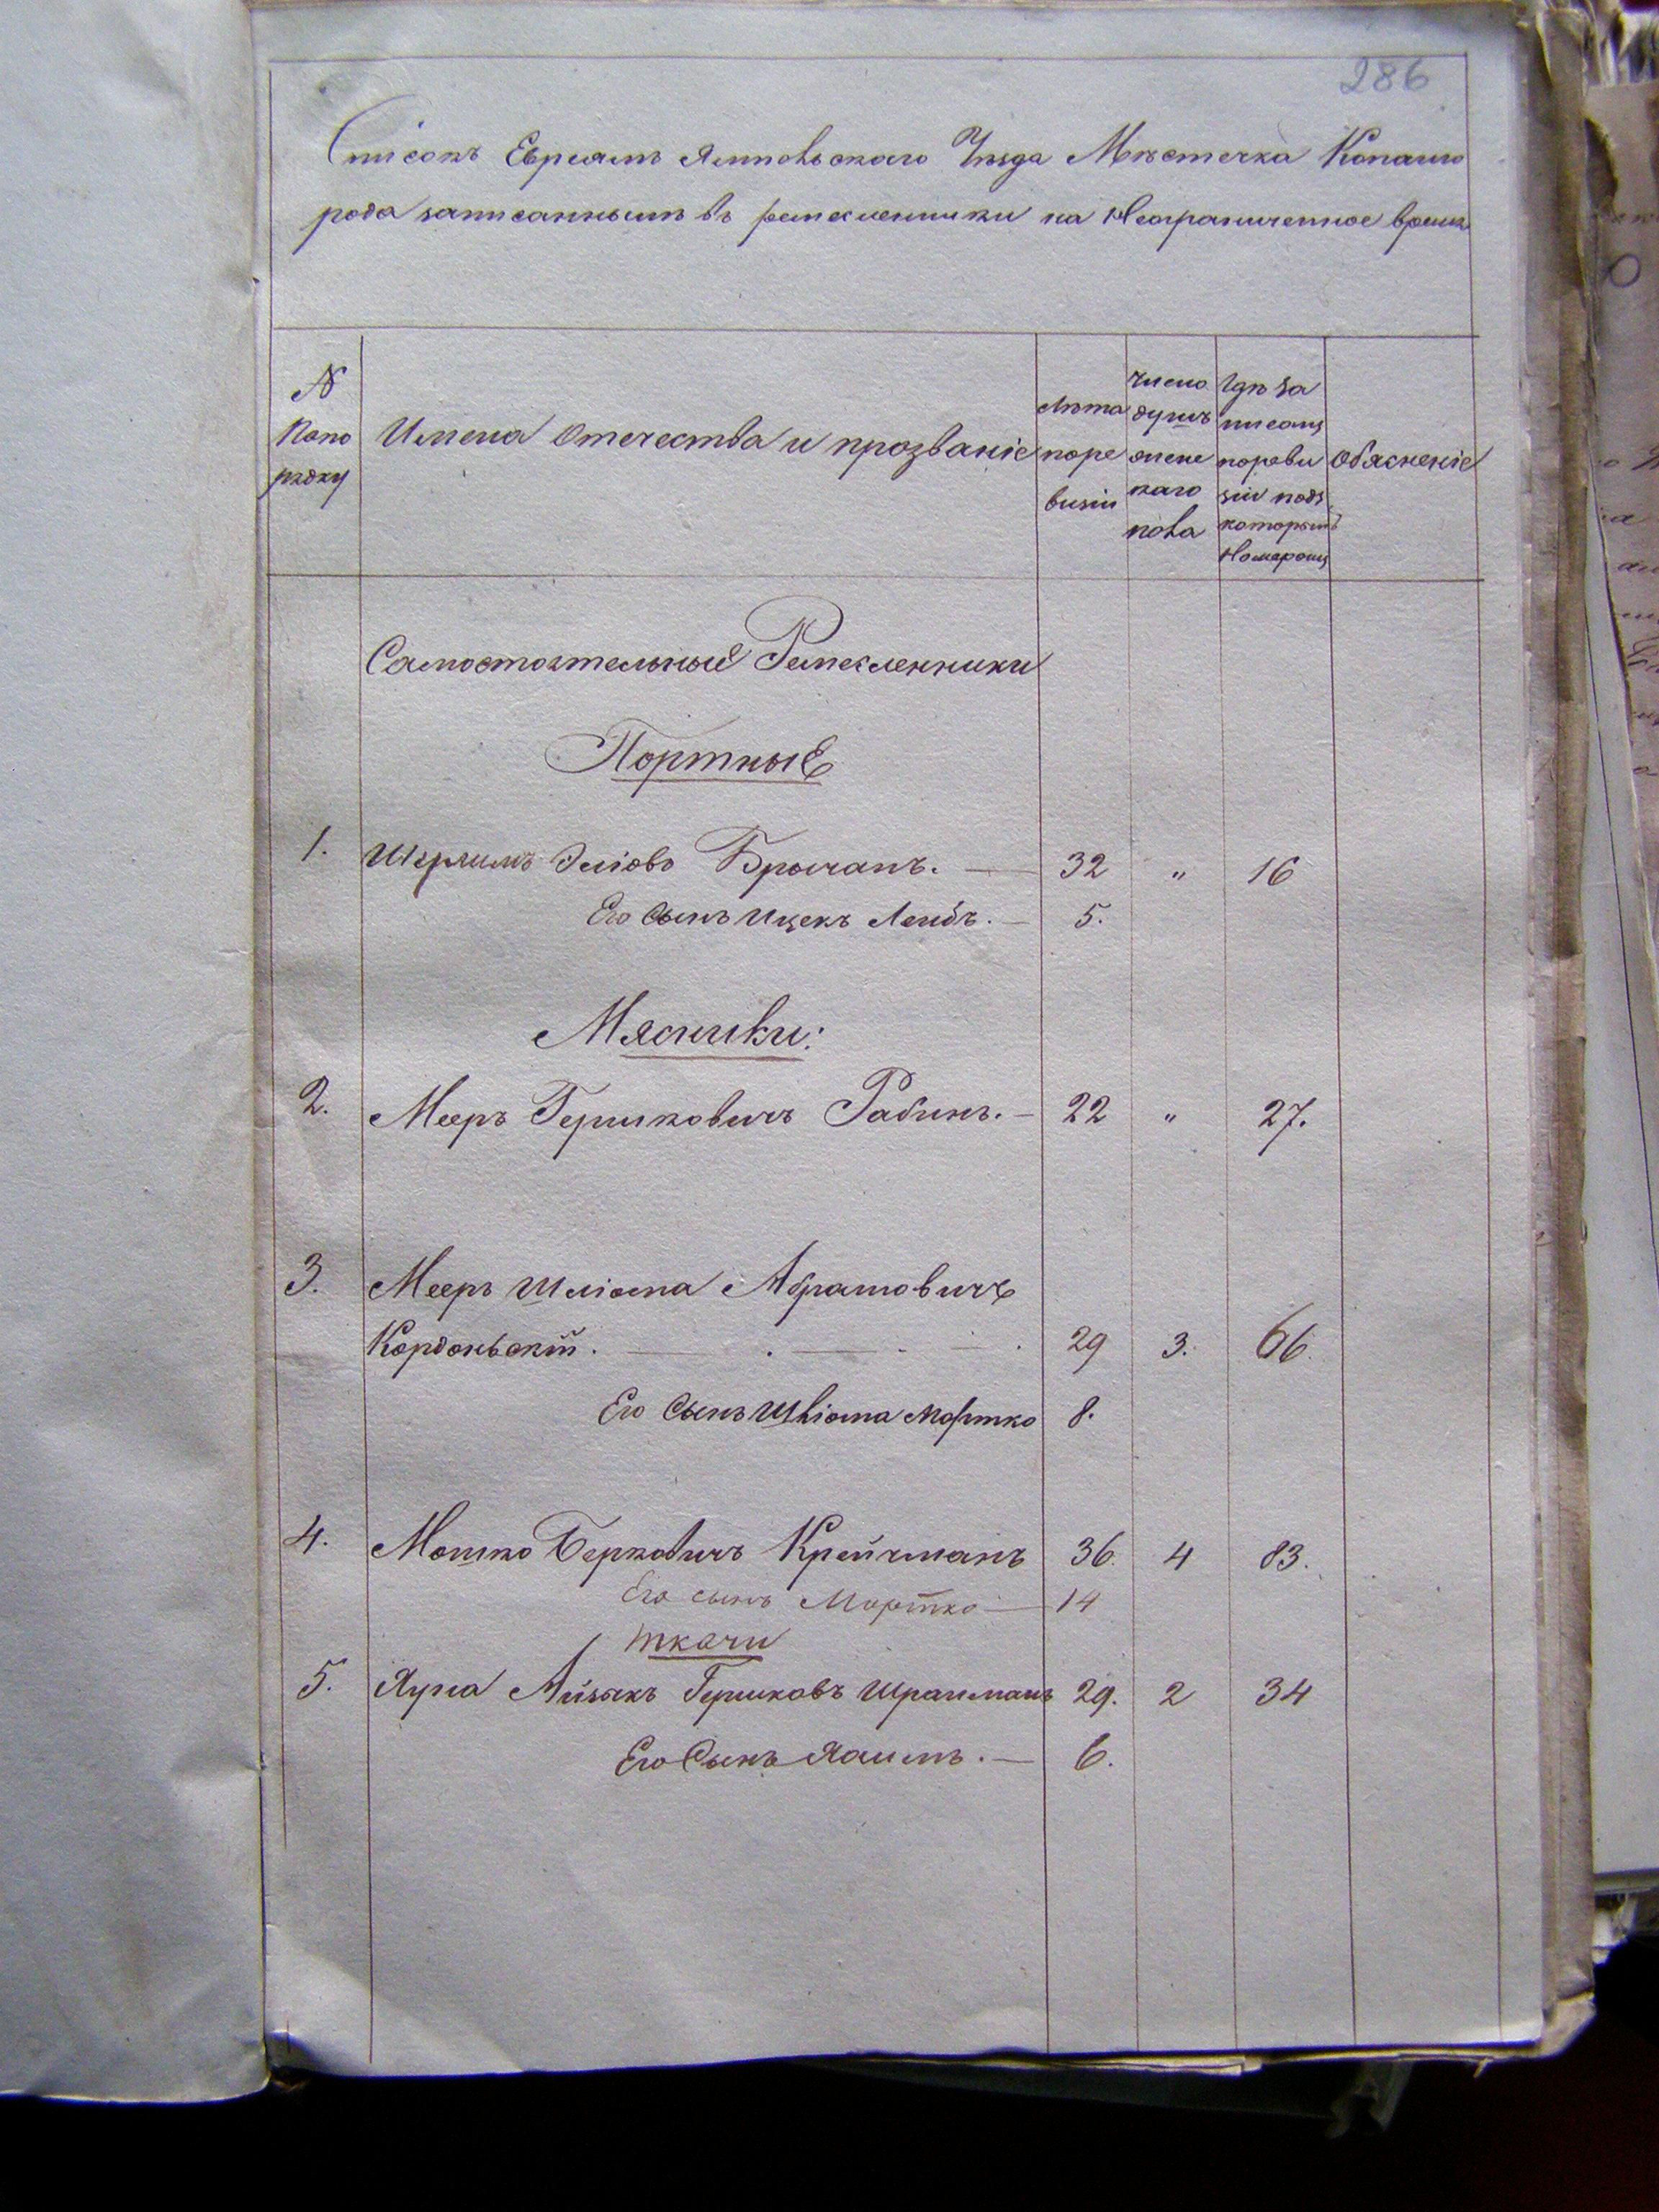 286
Списокъ Евреямъ Ямпольскаго Уѣзда Мѣстечка Копайго
рода записаннымъ въ ремесленники на Неограниченное время
№ Попо рядку
Имена Отечества и прозваніе
Лѣта поре визіи
Число душъ жене каго пола
Гдѣ за писаны пореви зіи подъ которымъ Номеромъ
Обясненіе
Самостоятельные Ремесленники
Портные
1. Эліово Брычанъ. 32 " 16
Его Сынъ Ицекъ Лейбъ. 5.
Мясники:
2. Мееръ Гершковичъ Рабинъ. 22 " 27.
3. Мееръ Шліома Абрамовичъ
Кордоньскій. 29 3. 66.
Его Сынъ Шліома Мортко 8.
4. Мошко Берковичъ Крейчманъ 36. 4 83.
Его сынъ Мортко 14
ткачи
5. Айзикъ Гершковъ 29. 2 34
Его Сынъ 6.